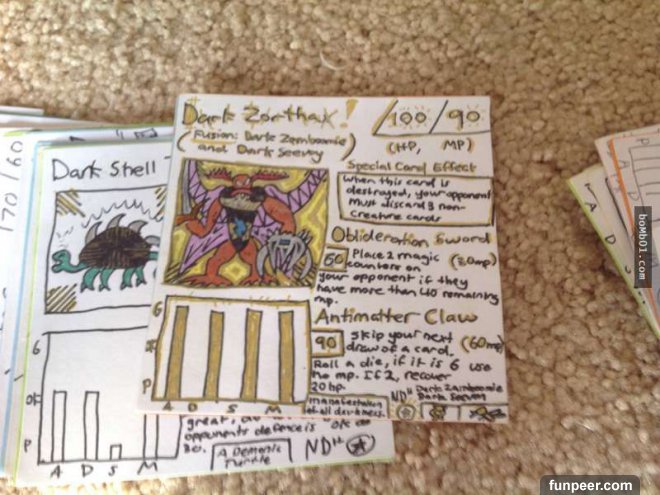 Dark Zorthax!
100/90
(Fusion: Dark Zamboomie
and Dark Seevoy)
(HP, MP)
Special Card Effect
When this card is
destroyed, your opponent
must discard 3 non-
creature cards
Oblideration Sword
60 Place 2 magic (20mp)
counters on
your opponent if they
have more than 40 remaining
mp.
Antimatter Claw
90 Skip your next (60mp)
draw of a card.
Roll a die, if it is 6 use
no mp. If 2, recover
20hp.
manifestation
of all darkness.
ND"
Dark Zamboomie
6
OK
P
A D S M
Dark Shell
170/60
6
OK
P
A D S M
great,
opponents defence is
30.
A Demonic
Turtle
ND"
P
A
D
bomb01.com
funpeer.com